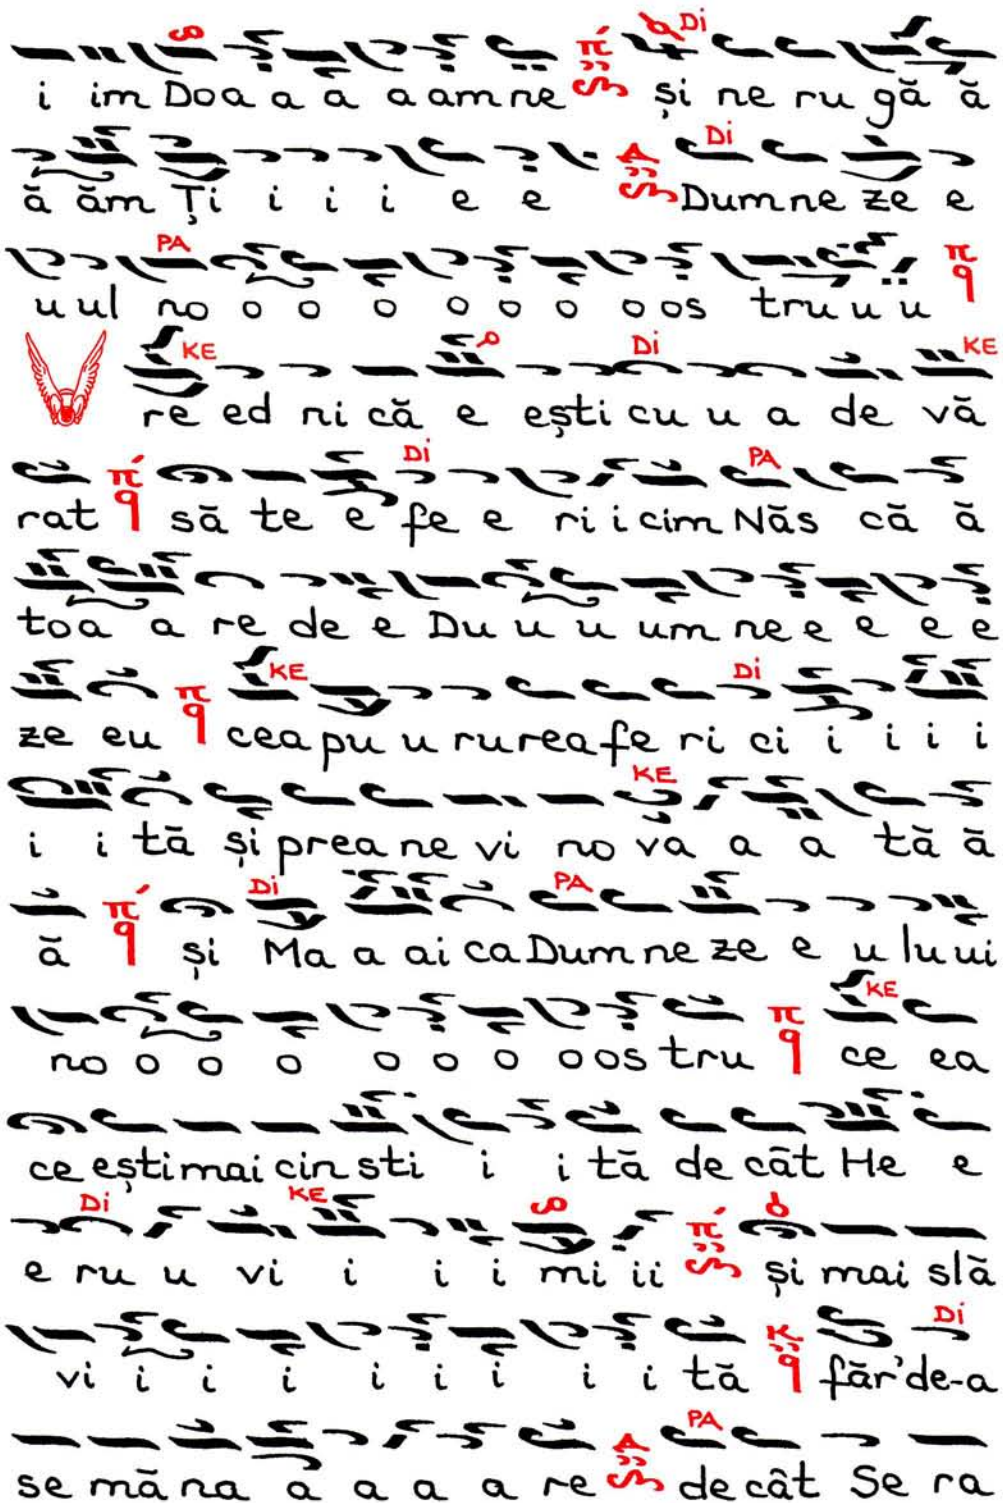 i im Doa a a a am ne și ne ru gă ă
ă ăm Ți i i i e e Dum ne ze e
u ul no o o o o o o o os tru u u
re ed ni că e ești cu u a de vă
rat să te e fe e ri i cim Năs că ă
toa a re de e Du u u um ne e e e e
ze eu cea pu u ru rea fe ri ci i i i i
i i tă și prea ne vi no va a a tă ă
ă și Ma a ai ca Dum ne ze e u lu ui
no o o o o o o o os tru ce ea
ce ești mai cin sti i i tă de cât He e
e ru u vi i i i mi ii și mai slă
vi i i i i i i i i tă făr'de-a
se mă na a a a a re de cât Se ra